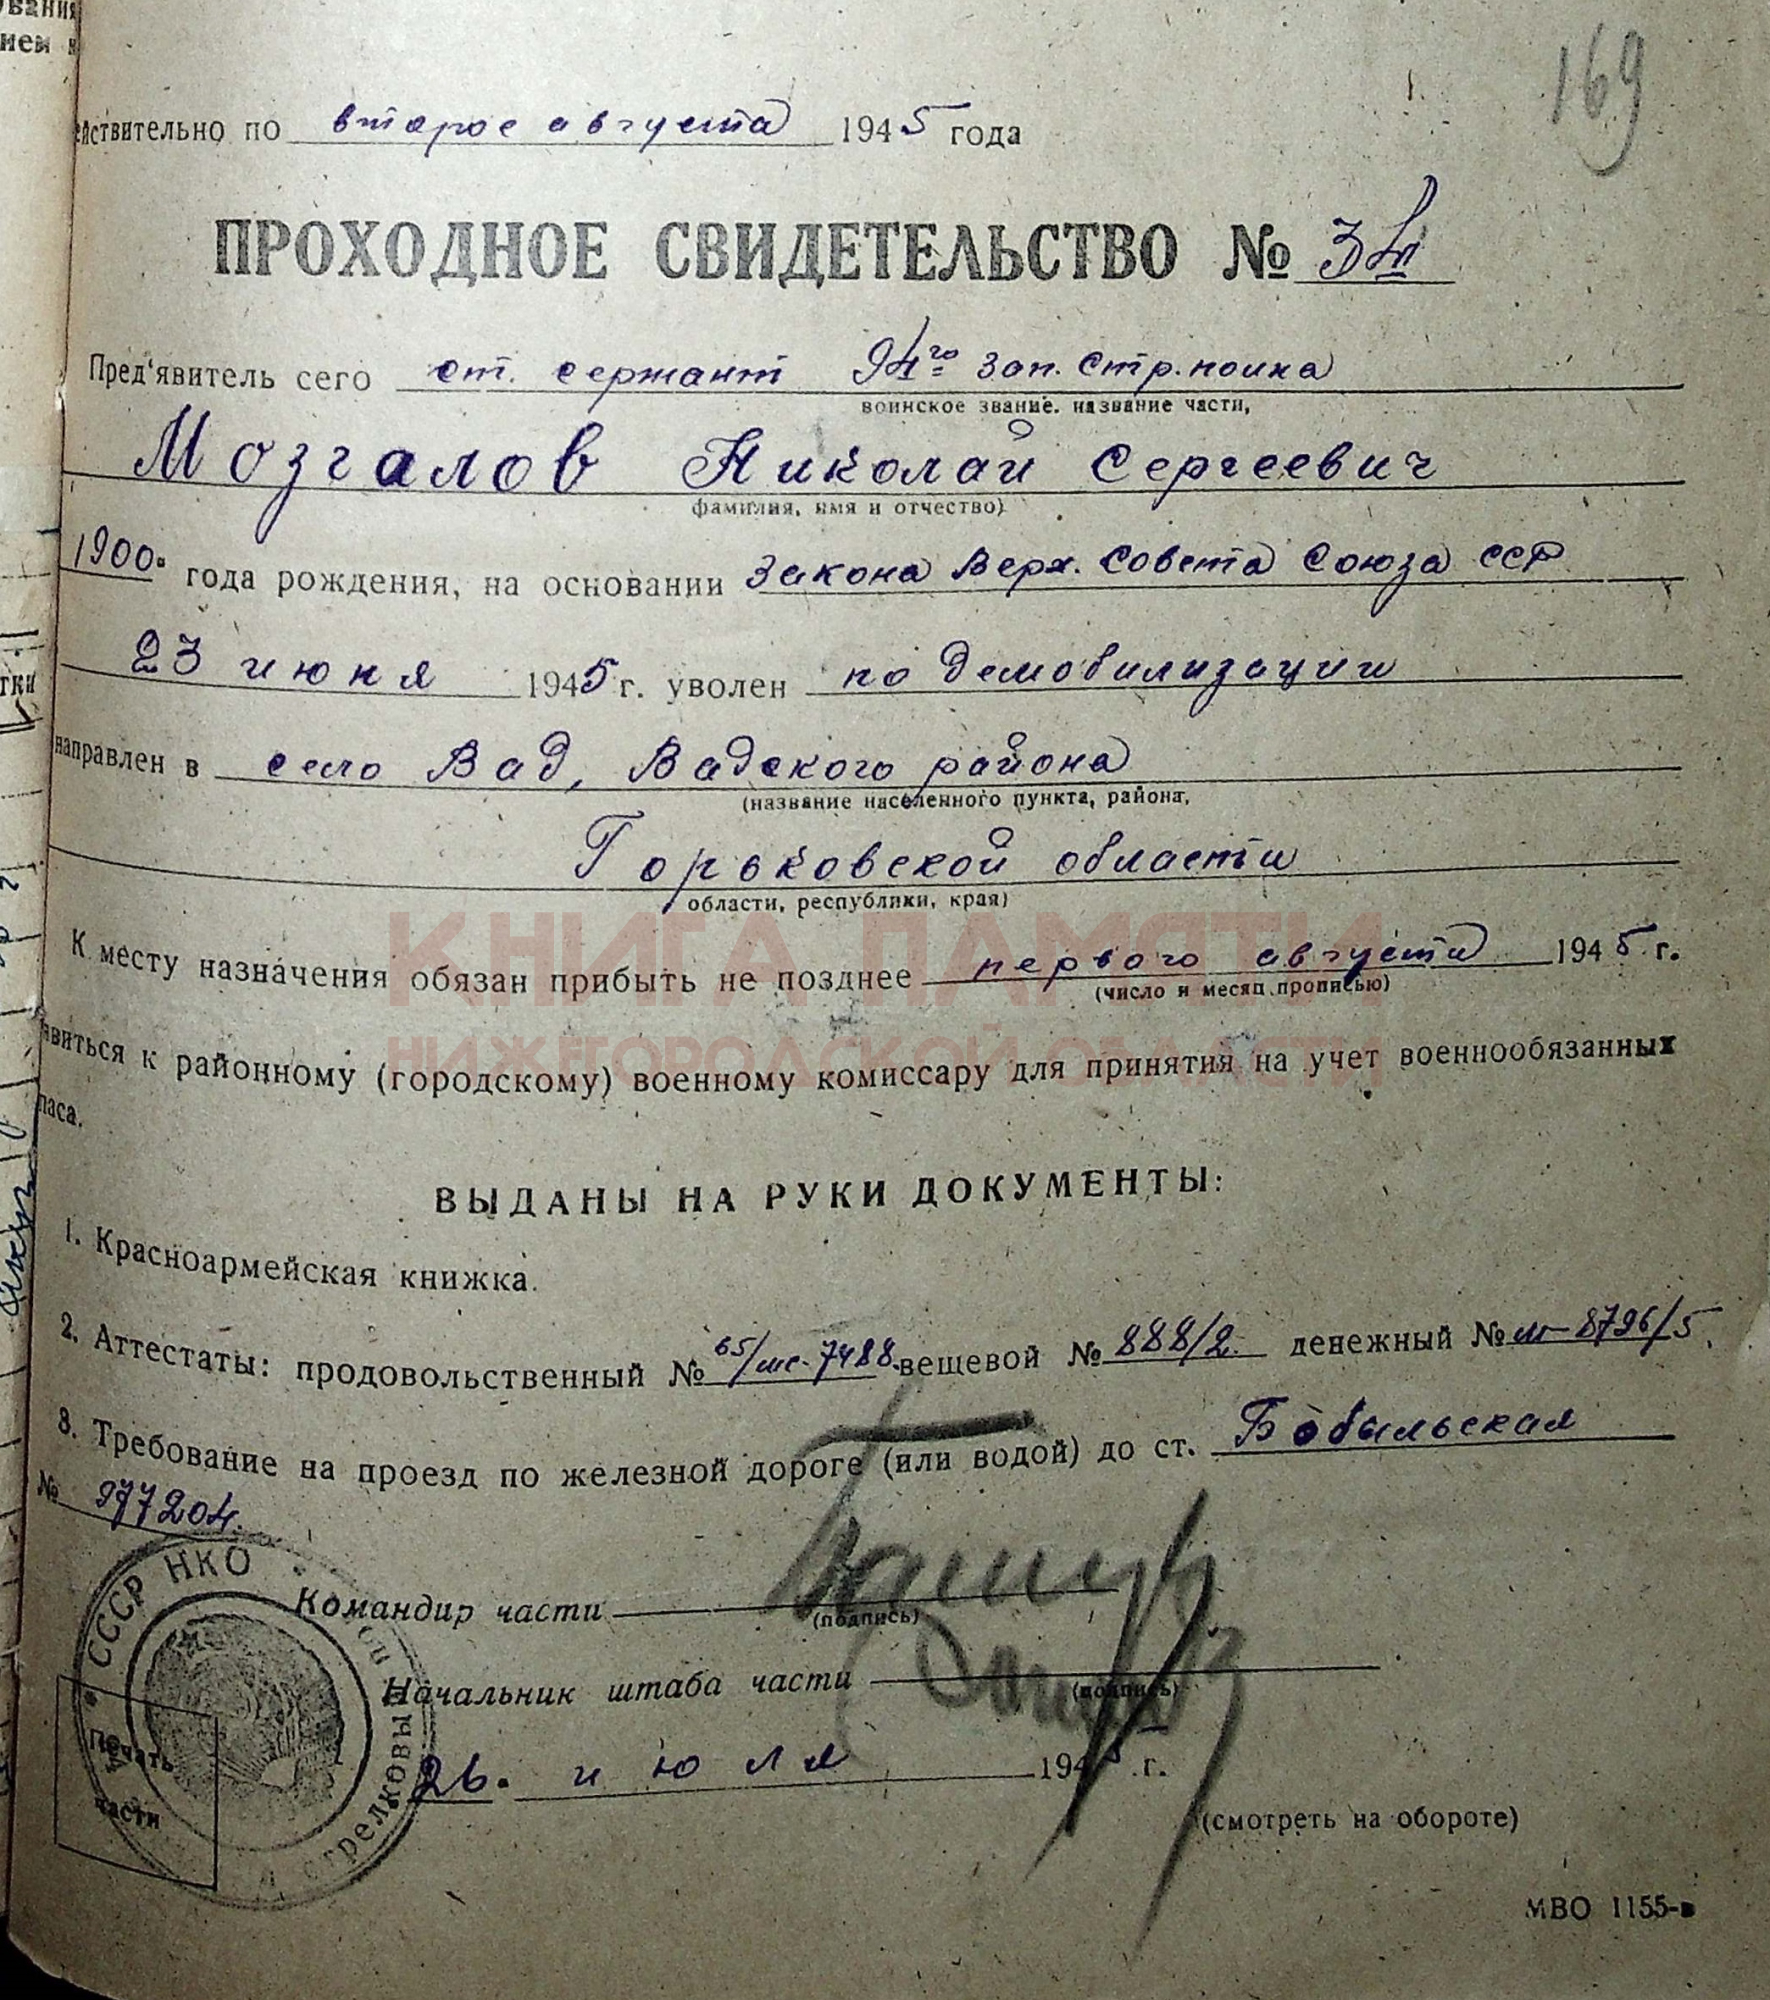 169
ействительно по второе августа 1945 года
ПРОХОДНОЕ СВИДЕТЕЛЬСТВО № 34
Пред'явитель сего ст. сержант 94го зап. стр. полка
воинское звание. название части,
Мозгалов Николай Сергеевич
фамилия, имя и отчество)
1900. года рождения, на основании Закона Верх. Совета Союза ССР
23 июня 1945 г. уволен по демобилизации
направлен в село Вад, Вадского района
(название населенного пункта, района,
Горьковской области
области, республики, края)
КНИГА ПАМЯТИ
К месту назначения обязан прибыть не позднее первого августа 1945 г.
(число и месяц прописью)
НИЖЕГОРОДСКОЙ ОБЛАСТИ
явиться к районному (городскому) военному комиссару для принятия на учет военнообязанных
паса.
ВЫДАНЫ НА РУКИ ДОКУМЕНТЫ:
1. Красноармейская книжка.
2. Аттестаты: продовольственный № 65/мс-7488. вещевой № 888/2. денежный № м-8796/5.
3. Требование на проезд по железной дороге (или водой) до ст. Бобыльская
№ 977204.
СССР НКО
Командир части
(подпись)
Начальник штаба части
(подпись)
Печать
части
стрелковый
26. июля 1945 г.
(смотреть на обороте)
МВО 1155-в